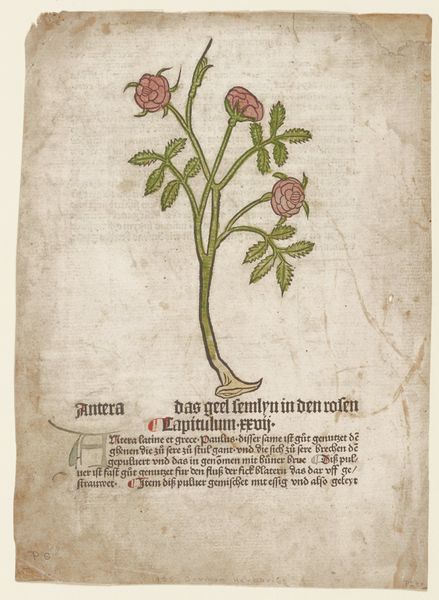 Antera das geel semlyn in den rosen
Capitulum · xxvij ·
ANtera latine et grece · Paulus · disser same ist gůt genutzet dē
ghenen die zů sere zů stůl gant · vnd die sich zů sere brechen dē
gepuluert vnd das in genōmen mit hůner brue Diß pul-
uer ist fast gůt genutzet fur den fluß der fick blatern das dar vff ge/
strauwet · Item diß puluer gemischet mit essig vnd also geleyt
P 6
German Herbarius